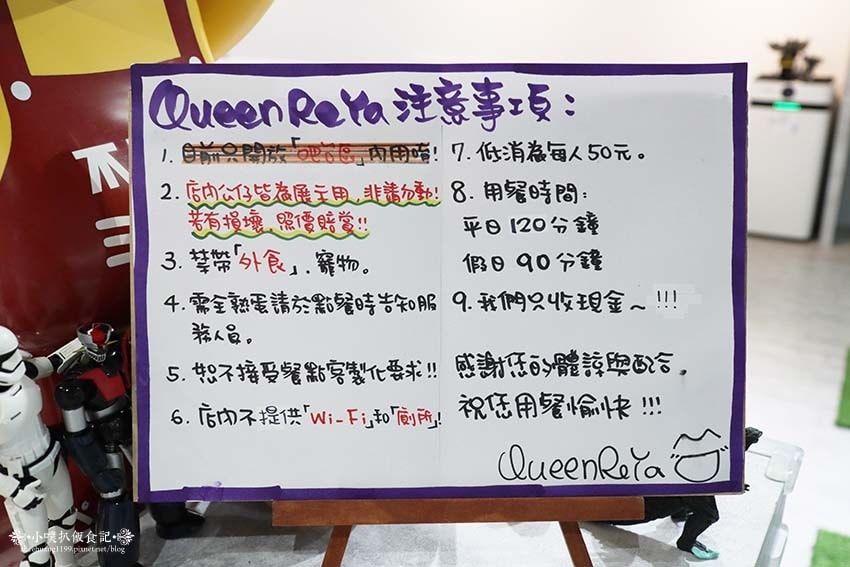 QueenReYa 注意事項：
1. 目前只開放「吧台區」內用唷！
2. 店內公仔皆為展示用，非請勿動！
若有損壞，照價賠賞!!
3. 禁帶「外食」、寵物。
4. 需全熟蛋請於點餐時告知服
務人員。
5. 恕不接受餐點客製化要求!!
6. 店內不提供「Wi-Fi」和「廁所」!
7. 低消為每人50元。
8. 用餐時間：
平日 120 分鐘
假日 90 分鐘
9. 我們只收現金～!!!
感謝您的體諒與配合，
祝您用餐愉快!!!
QueenReYa
小噗扒飯食記
1199.pixnet.net/blog